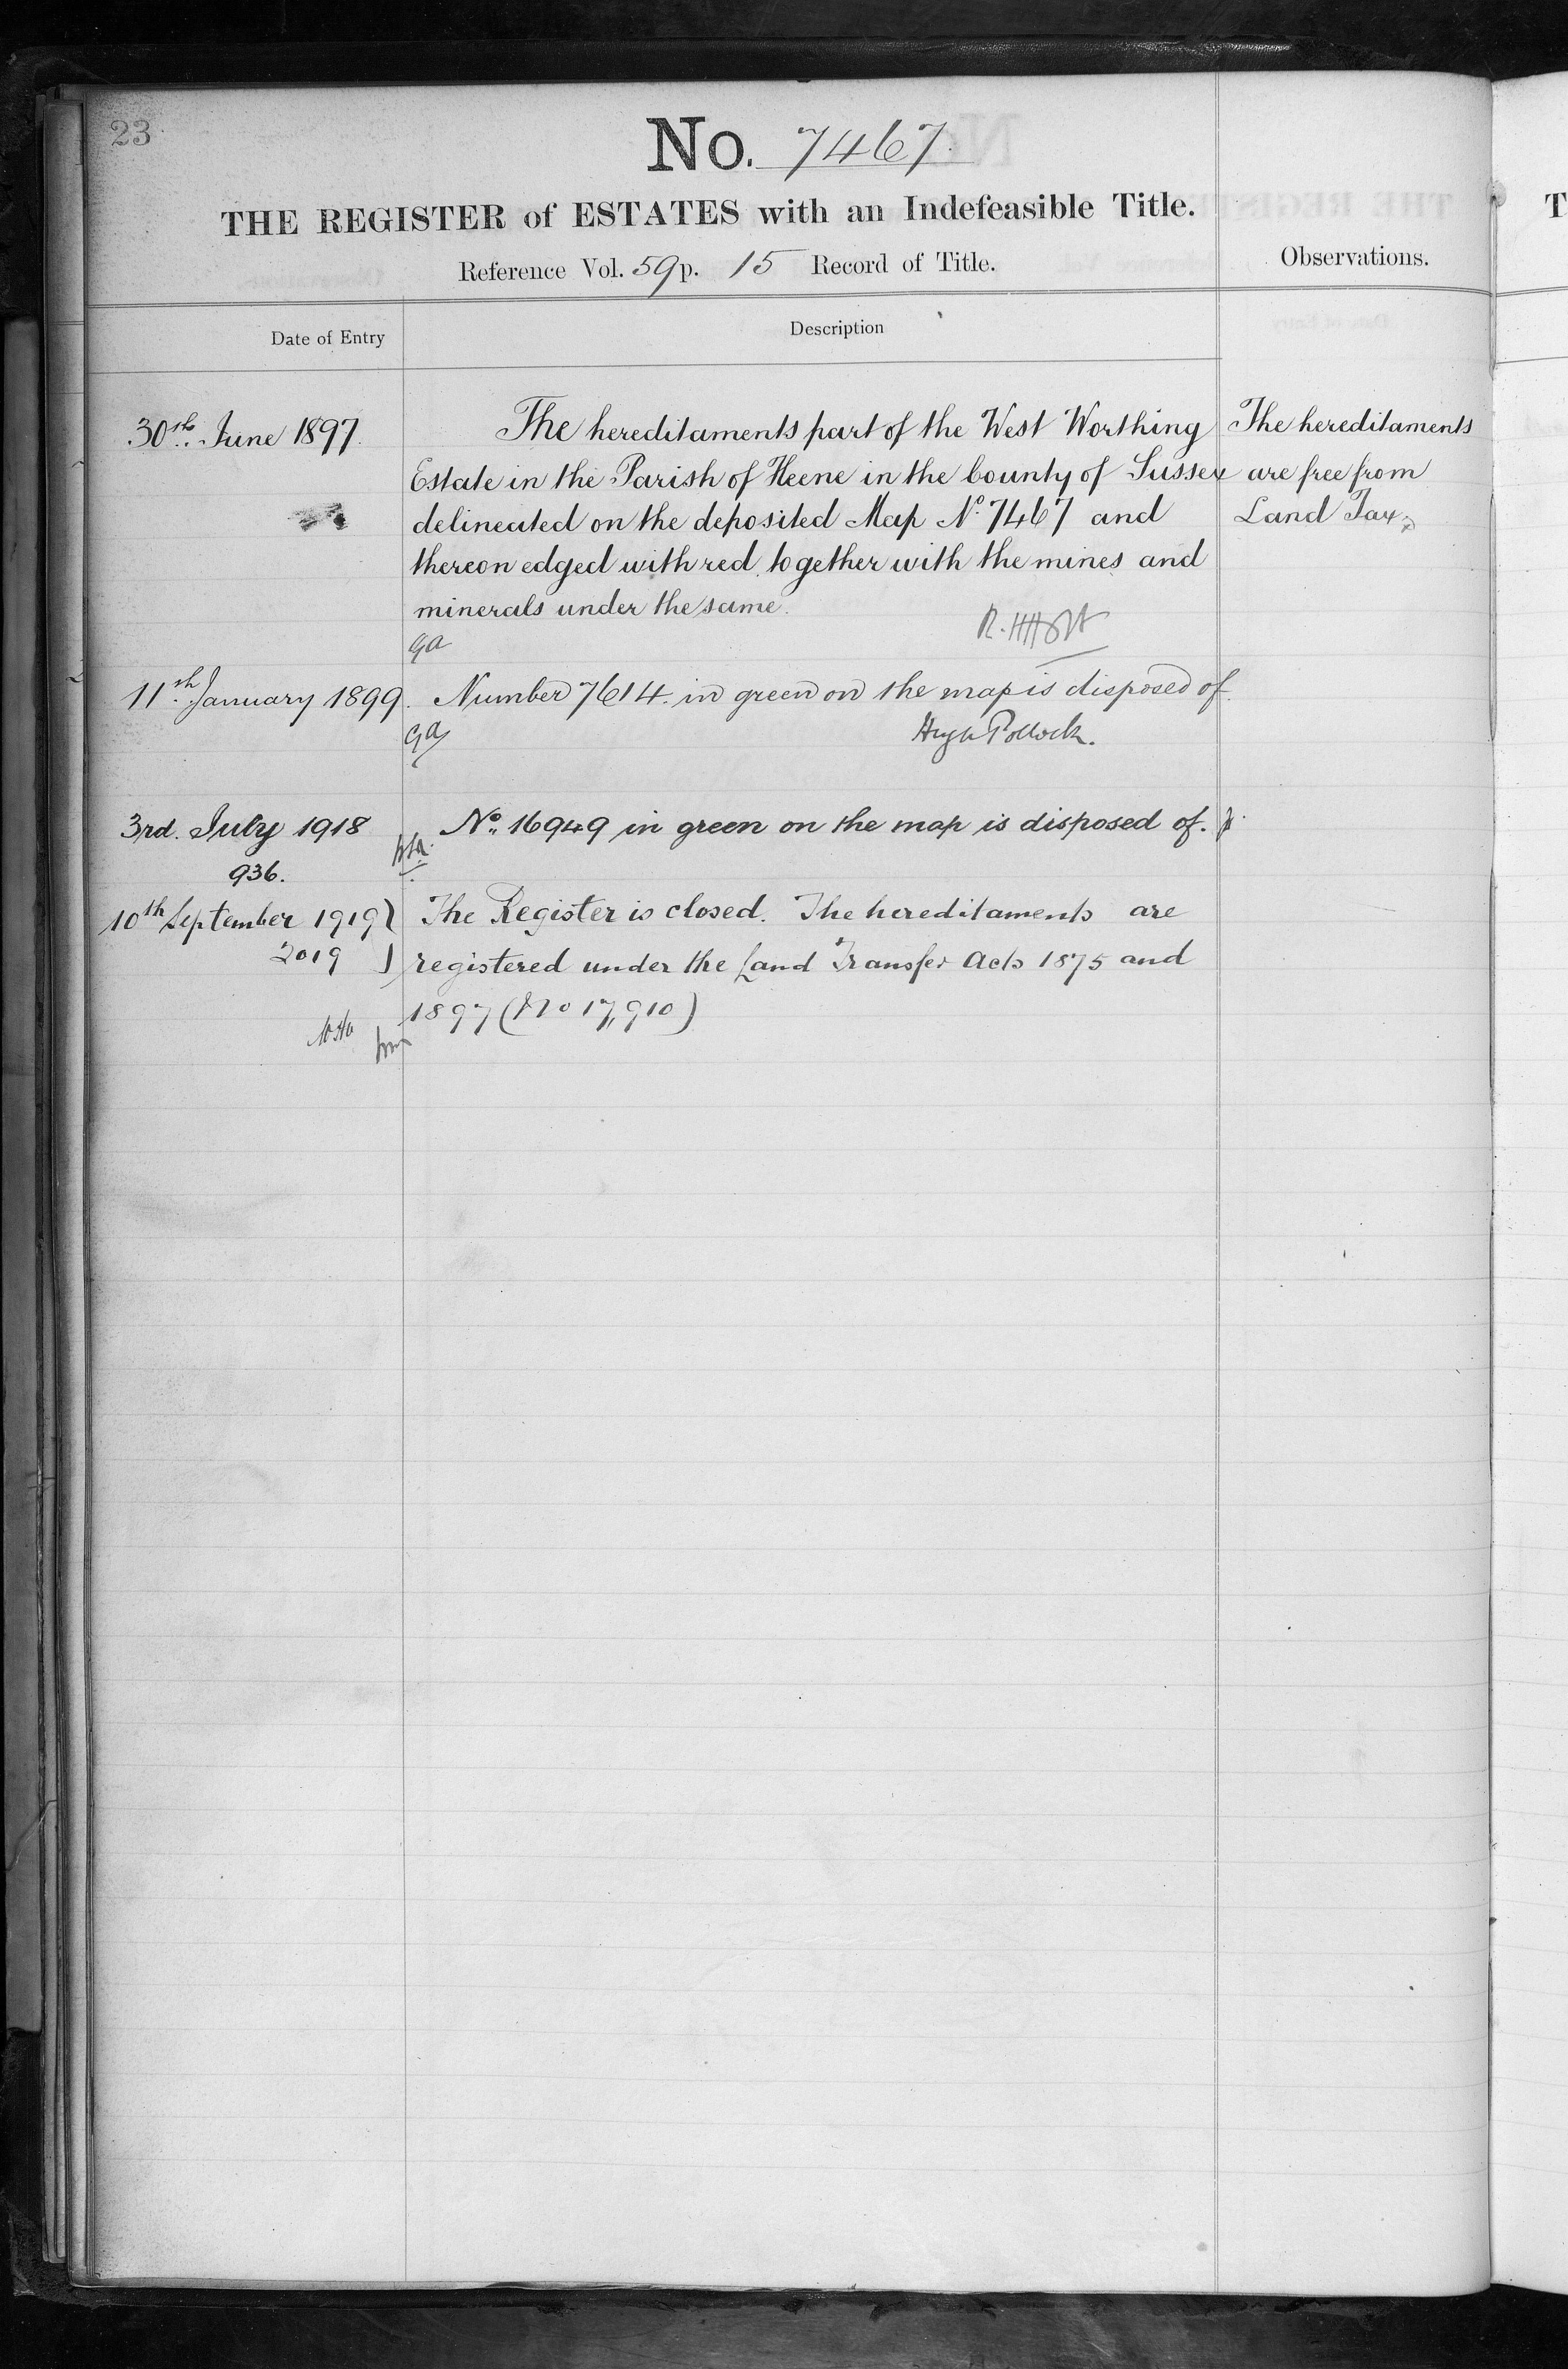 23
No. 7467.
THE REGISTER of ESTATES with an Indefeasible Title.
Reference Vol. 59 p. 15 Record of Title.
Observations.
Date of Entry
Description
30th. June 1897.
The hereditaments part of the West Worthing
Estate in the Parish of Heene in the County of Sussex
delineated on the deposited Map No. 7467 and
thereon edged with red together with the mines and
minerals under the same.
The hereditaments
are free from
Land Tax.
ga
R. H Holt
11th. January 1899.
Number 7614. in green on the map is disposed of.
ga
Hugh Pollock.
3rd. July 1918
936.
No. 16949 in green on the map is disposed of.
10th September 1919
2019
The Register is closed. The hereditaments are
registered under the Land Transfer Acts 1875 and
1897 (No 17,910)
T